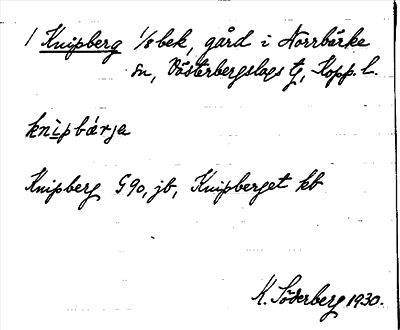 1 Knipberg 1/8 bek, gård i Norrbärke
sn, Västerbergslags tg, Kopp. l.
knìpbárja
Knipberg G90, jb, Knipberget kb
K. Söderberg 1930.